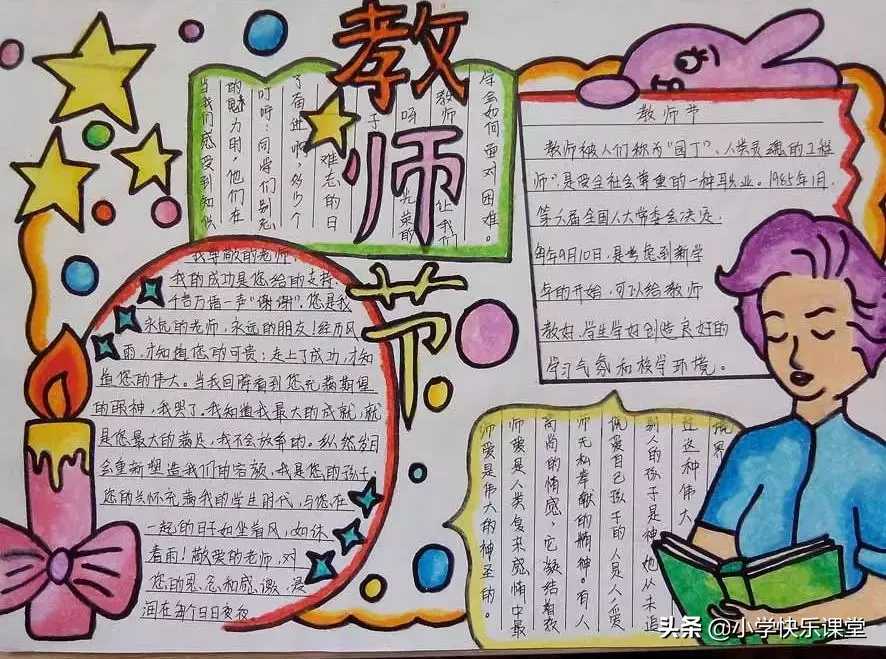 教师节
当我们感受到知识
的魅力时,他们在
叮咛:同学们别忘
了奋进啊,多少个
难忘的日
子
呀
光荣的
教师
让我们
学会如何面对困难。
教师节
教师被人们称为“园丁”、人类灵魂的工程
师”,是受全社会尊重的一种职业。1985年1月,
第六届全国人大常委会决定,
每年9月10日,是考虑到新学
年的开始,可以给教师
教好、学生学好创造良好的
学习气氛和校学环境。
我尊敬的老师
我的成功是您给的支持,
千言万语一声“谢谢”,您是我
永远的老师,永远的朋友!经历风
雨,才知道您的可贵;走上了成功,才知
道您的伟大。当我回眸看到您充满期望
的眼神,我哭了。我知道我最大的成就,就
是您最大的满足,我不会放弃的。纵然岁月
会重新塑造我们的容颜,我是您的孩子,
您的关怀充满我的学生时代,与您在
一起的日子如坐着风,如沐
春雨!敬爱的老师,对
您的思念和感激,浸
润在每个日日夜夜
师爱是伟大的神圣的。
师爱是人类复杂感情中最
高尚的情感,它凝结着教
师无私奉献的精神。有人
说爱自己孩子的人是人,爱
别人的孩子是神,她从未追
过这种伟大
境界
头条 @小学快乐课堂